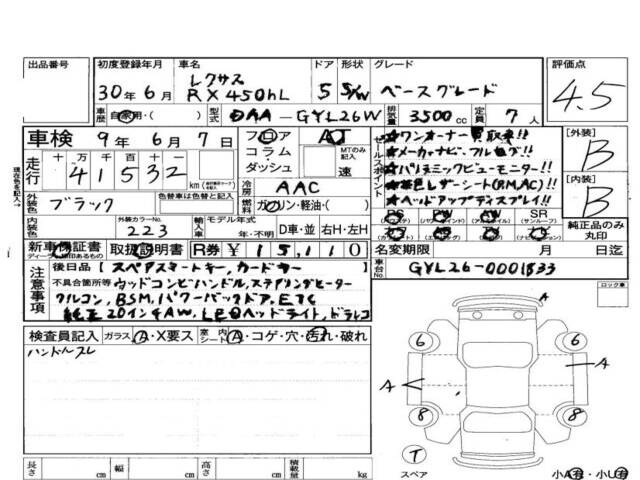 出品番号 初度登録年月 車名 ドア 形状 グレード 評価点
30年6月 レクサス RX450hL 5 S/W ベースグレード 4.5
車歴 自家用・( ) 型式 DAA-GYL26W 排気量 3500cc 定員 7人
車検 9年6月7日 フロア コラム・ダッシュ AT MTのみ記入 速
走行 十万千百十 41532 km
セールスポイント
★ワンオーナー買取車!!
★メーカーナビ、フルセグ!!
★パノラミックビューモニター!!
★茶色レザーシート(P.M,AC)!!
★ヘッドアップディスプレイ!!
[外装] B
[内装] B
冷房 AAC
外装色 ブラック 色替車は色替と記入 燃料 ガソリン・軽油・( )
内装色 外装カラーNo. 223 輸入車 モデル年式 年・不明 D車・並 右H・左H
PS PW AW SR (サンルーフ)
純正品のみ丸印
新車保証書 取扱説明書 R券 ¥15,110 名変期限 月 日迄
注意事項
後日品[スペアスマートキー,カードキー]
不具合箇所等 ウッドコンビハンドル,ステアリングヒーター
クルコン,BSM,パワーバックドア,ETC
純正20インチAW,LEDヘッドライト,ドラレコ
車台No. GYL26-0001833
ロック車
検査員記入 ガラス A・X要ス 室内 シート A・コゲ・穴・汚れ・破れ
ハンドルスレ
A
6 6
A A
8 8
T
スペア 小A有・小U有
長さ cm 幅 cm 高さ cm 積載量 kg
現在色を記入→